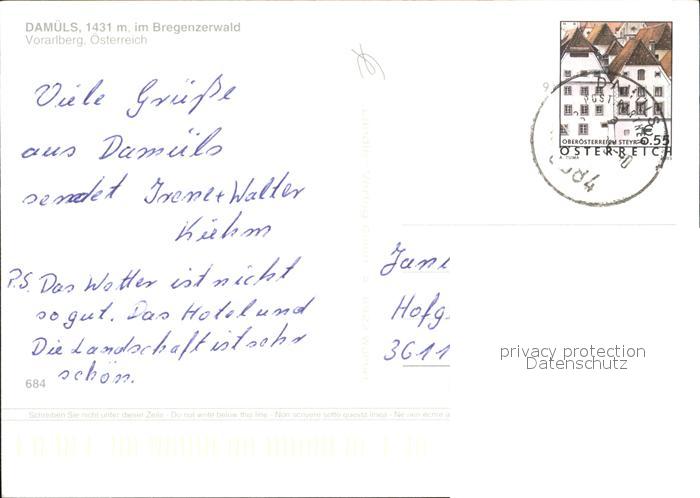 DAMÜLS, 1431 m, im Bregenzerwald
Vorarlberg, Österreich
Viele Grüße
aus Damüls
sendet Irene + Walter
Kiehm
P.S. Das Wetter ist nicht
so gut. Das Hotel und
Die Landschaft ist sehr
schön.
684
OBERÖSTERREICH STEYR
€0.55
ÖSTERREICH
A. TUMA
POST
Jani
Hofg
3611
privacy protection
Datenschutz
Schreiben Sie nicht unter dieser Zeile - Do not write below this line - Non scrivere sotto questa linea - Ne rien écrire a